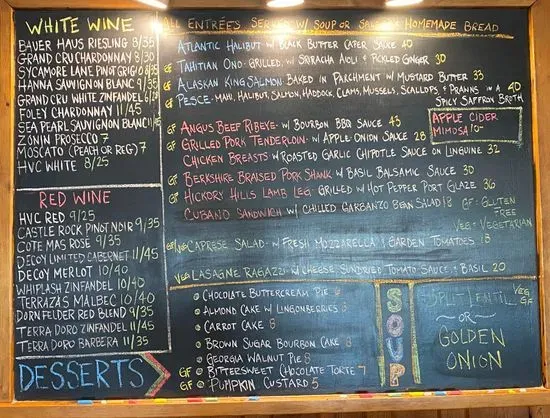 WHITE WINE
BAUER HAUS RIESLING 8/35
GRAND CRU CHARDONNAY 8/30
SYCAMORE LANE PINOT GRIGIO 8/35
HANNA SAUVIGNON BLANC 9/35
GRAND CRU WHITE ZINFANDEL 6/28
FOLEY CHARDONNAY 11/45
SEA PEARL SAUVIGNON BLANC 11/45
ZONIN PROSECCO 7
MOSCATO (PEACH OR REG) 7
HVC WHITE 8/25
RED WINE
HVC RED 9/25
CASTLE ROCK PINOT NOIR 9/35
COTE MAS ROSÉ 9/35
DECOY LIMITED CABERNET 11/45
DECOY MERLOT 10/40
WHIPLASH ZINFANDEL 10/40
TERRAZAS MALBEC 10/40
DORNFELDER RED BLEND 9/35
TERRA DORO ZINFANDEL 11/45
TERRA DORO BARBERA 11/35
DESSERTS
ALL ENTRÉES SERVED W/ SOUP OR SALAD & HOMEMADE BREAD
ATLANTIC HALIBUT W/ BLACK BUTTER CAPER SAUCE 40
GF TAHITIAN ONO- GRILLED, W/ SRIRACHA AIOLI & PICKLED GINGER 30
GF ALASKAN KING SALMON- BAKED IN PARCHMENT W/ MUSTARD BUTTER 33
GF PESCE- MAHI, HALIBUT, SALMON, HADDOCK, CLAMS, MUSSELS, SCALLOPS & PRAWNS IN A 40
SPICY SAFFRON BROTH
GF ANGUS BEEF RIBEYE- W/ BOURBON BBQ SAUCE 43
GF GRILLED PORK TENDERLOIN- W/ APPLE ONION SAUCE 28
CHICKEN BREASTS W/ ROASTED GARLIC CHIPOTLE SAUCE ON LINGUINE 32
GF BERKSHIRE BRAISED PORK SHANK W/ BASIL BALSAMIC SAUCE 30
GF HICKORY HILLS LAMB LEG- GRILLED W/ HOT PEPPER PORT GLAZE 36
CUBANO SANDWICH W/ CHILLED GARBANZO BEAN SALAD 18
APPLE CIDER
MIMOSA 10-
GF = GLUTEN
FREE
VEG = VEGETARIAN
GF VEG CAPRESE SALAD- W/ FRESH MOZZARELLA & GARDEN TOMATOES 18
VEG LASAGNE RAGAZZI W/ CHEESE SUNDRIED TOMATO SAUCE & BASIL 20
CHOCOLATE BUTTERCREAM PIE
ALMOND CAKE W/ LINGONBERRIES
CARROT CAKE 8
BROWN SUGAR BOURBON CAKE 8
GEORGIA WALNUT PIE 8
GF BITTERSWEET CHOCOLATE TORTE 7
GF PUMPKIN CUSTARD 5
SOUP
SPLIT LENTIL VEG GF
- OR -
GOLDEN
ONION